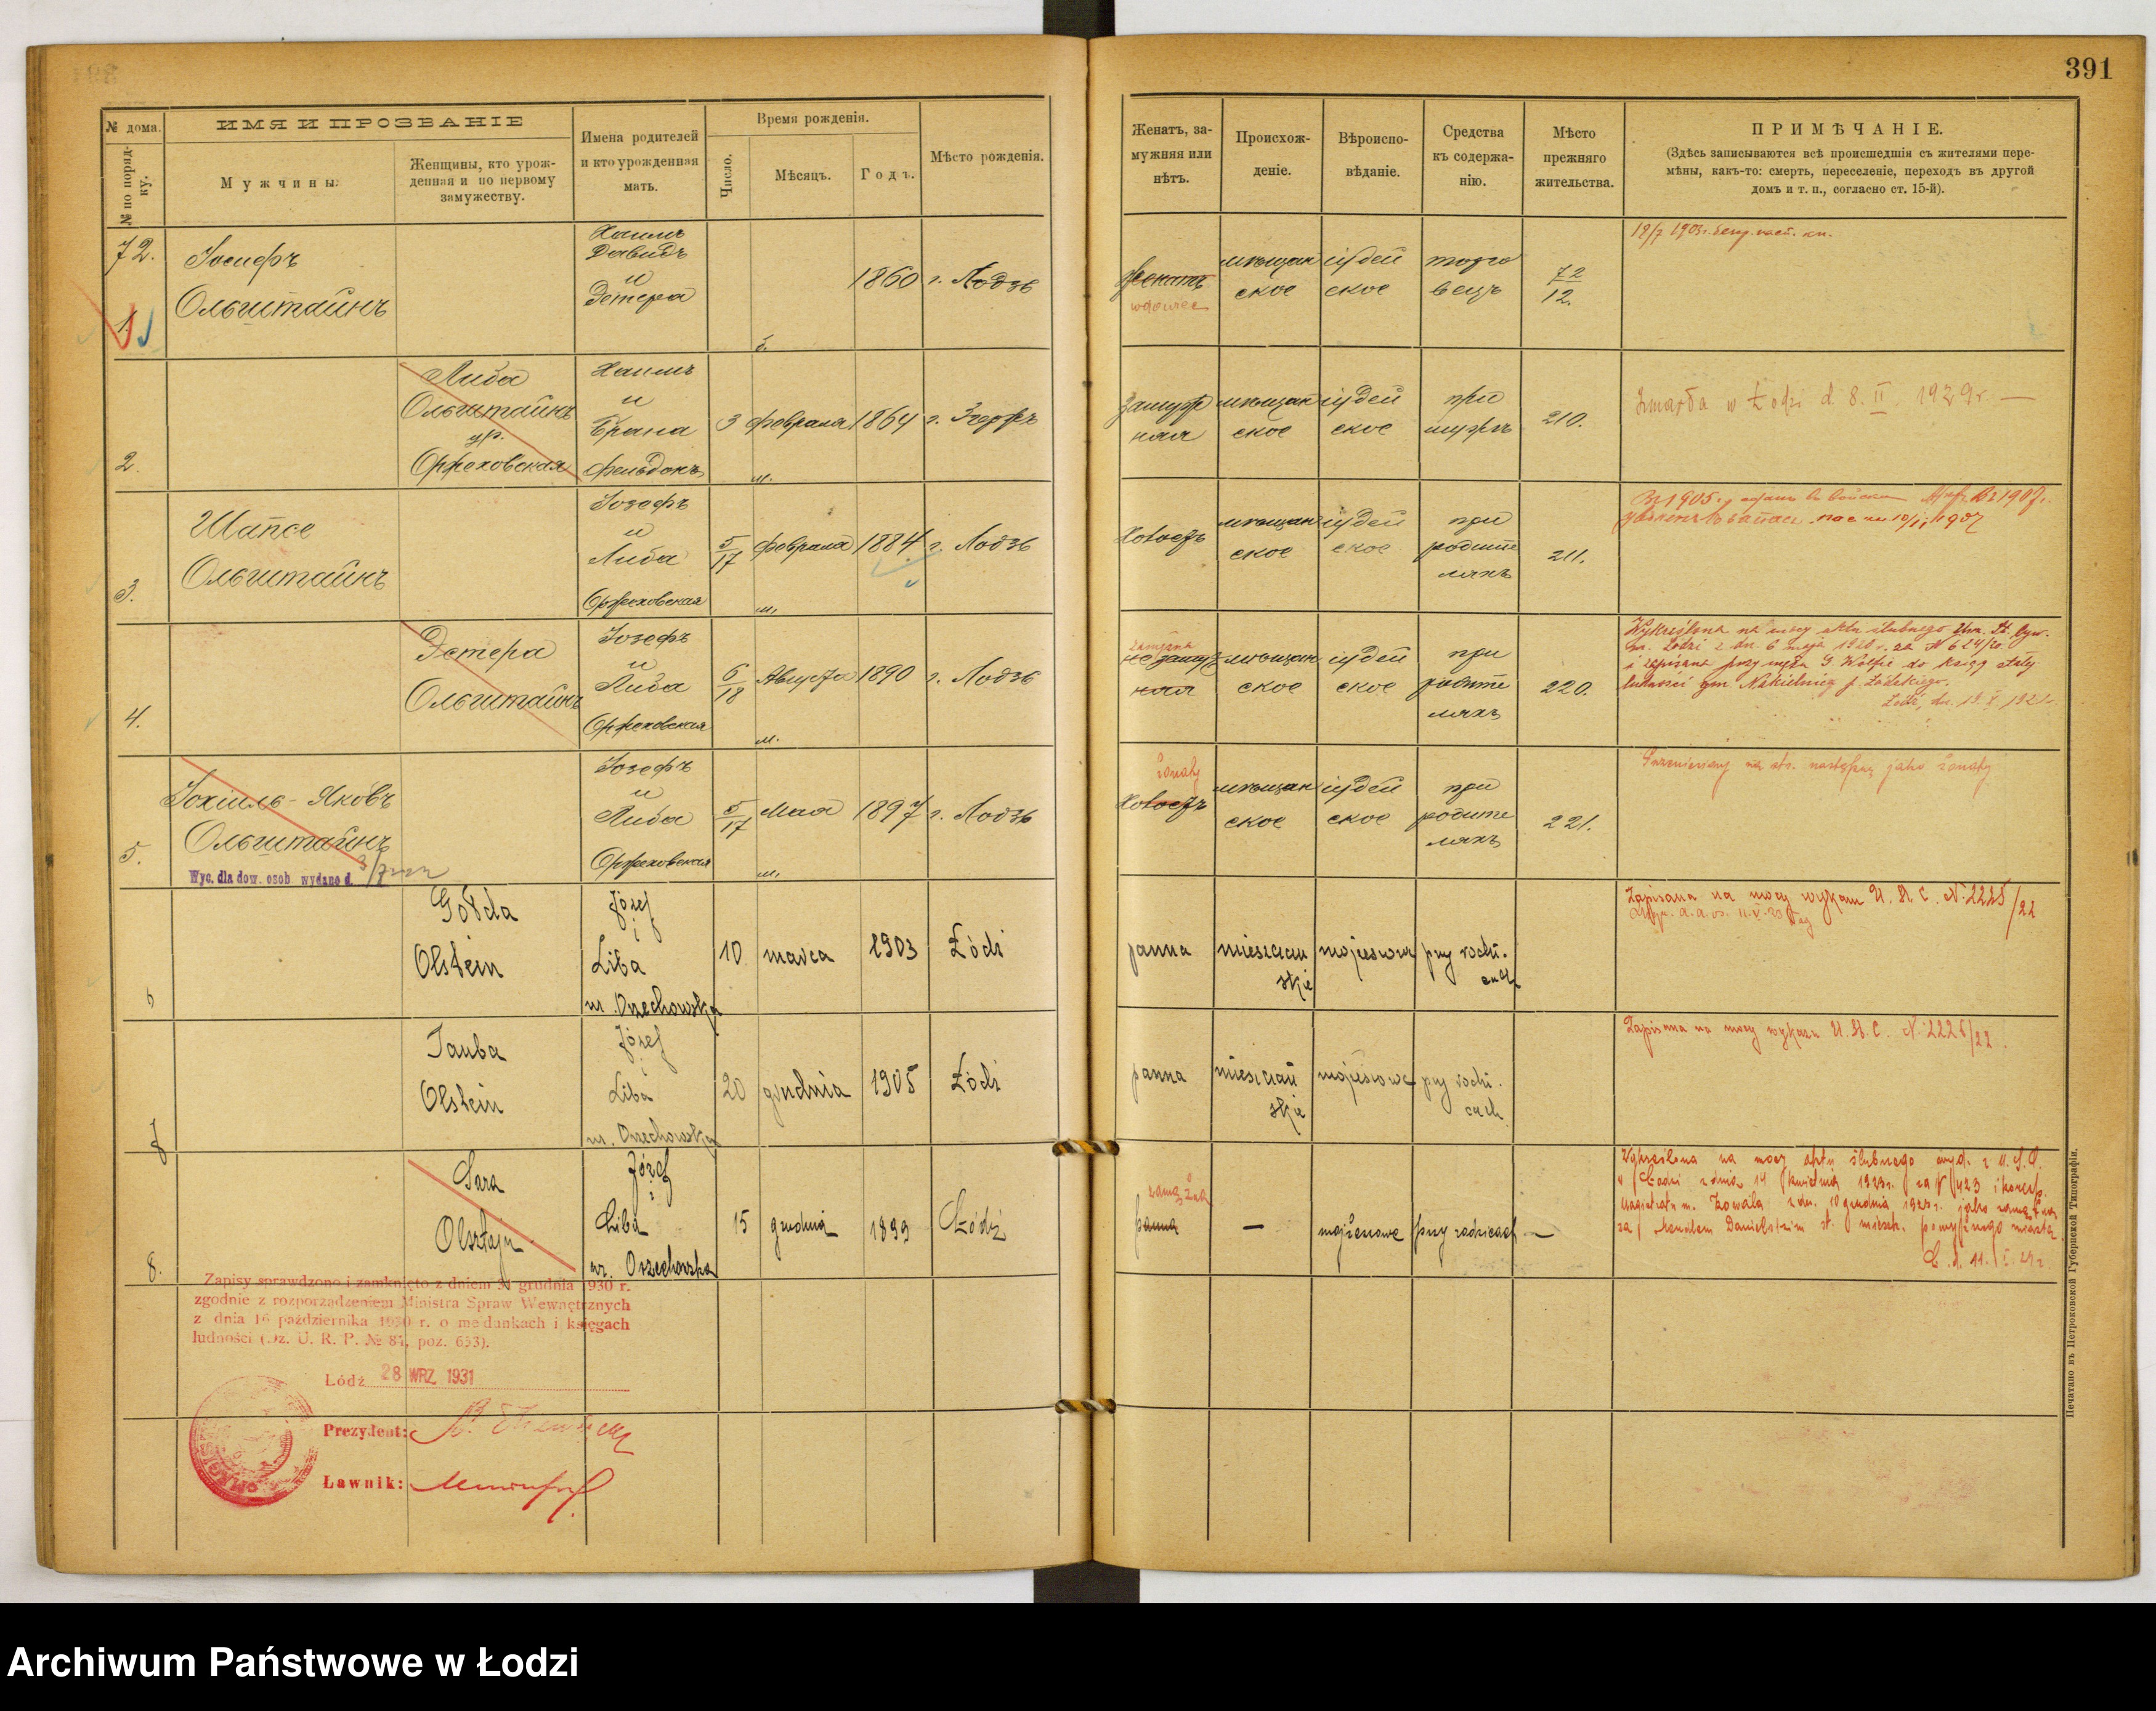 391
№ дома.
№ по порядку.
ИМЯ И ПРОЗВАНІЕ
Мужчины.
Женщины, кто урож-
денная и по первому
замужеству.
Имена родителей
и кто урожденная
мать.
Время рожденія.
Число.
Мѣсяцъ.
Годъ.
Мѣсто рожденія.
Женатъ, за-
мужняя или
нѣтъ.
Происхож-
деніе.
Вѣроиспо-
вѣданіе.
Средства
къ содержа-
нію.
Мѣсто
прежняго
жительства.
ПРИМѢЧАНІЕ.
(Здѣсь записываются всѣ происшедшія съ жителями пере-
мѣны, какъ-то: смерть, переселеніе, переходъ въ другой
домъ и т. п., согласно ст. 15-й).
72.
1.
Іосифъ
Ольштайнъ
Хаимъ
Давидъ
и
Эстера
1860
г. Лодзь
женатъ
wdowiec
мѣщан
ское
іудей
ское
торго
вецъ
72
12.
2.
Либа
Ольштайнъ
ур.
Оржеховская
Хаимъ
и
Брана
3 февраля 1864 г. Згержъ
Замуж
няя
мѣщан
ское
іудей
ское
при
мужѣ
210.
Zmarła w Łodzi d. 8. II 1929 r —
3.
Шапсе
Ольштайнъ
Іозефъ
и
Либа
Оржеховская
5/17 февраля 1884 г. Лодзь
Холостъ
мѣщан
ское
іудей
ское
при
родите
ляхъ
211.
4.
Эстера
Ольштайнъ
Іозефъ
и
Либа
Оржеховская
6/18 Августа 1890 г. Лодзь
zamężna
не замуж
няя
мѣщан
ское
іудей
ское
при
родите
ляхъ
220.
Wykreślona na mocy aktu ślubnego Urz. St. Cyw.
m. Łodzi z dn. 6 maja 1920 r. za N 624/20.
i zapisana przy mężu G. Wolfie do ksiąg stałej
ludności gm. Nakielnica p. Łódzkiego.
5.
Іохіиль-Яковъ
Ольштайнъ
Wyc. dla dow. osob wydano d.
Іозефъ
и
Либа
Оржеховская
5/17 Мая 1897 г. Лодзь
żonaty
Холостъ
мѣщан
ское
іудей
ское
при
родите
ляхъ
221.
Przeniesiony na str. następną jako żonaty
6
Gołda
Olstein
Józef
i
Liba
ur. Orzechowska
10 marca 1903 Łódź
panna
mieszczań
skie
mojżeszowe
przy rodzi-
cach
Zapisana na mocy wykazu U. St. C. N. 2225/22
7
Tauba
Olstein
Józef
i
Liba
ur. Orzechowska
20 grudnia 1905 Łódź
panna
mieszczań
skie
mojżeszowe
przy rodzi-
cach
Zapisana na mocy wykazu U. St. C. N. 2225/22.
8.
Sara
Olsztajn
Józef
i
Liba
ur. Orzechowska
15 grudnia 1899 Łódź
zamężna
panna
—
mojżeszowe
przy rodzicach
—
Wykreślona na mocy aktu ślubnego wyd. z U. S. C.
w Łodzi z dnia 14 kwietnia 1923 r.
Zapisy sprawdzono i zamknięto z dniem 31 grudnia 1930 r.
zgodnie z rozporządzeniem Ministra Spraw Wewnętrznych
z dnia 16 października 1930 r. o meldunkach i księgach
ludności (Dz. U. R. P. № 84, poz. 653).
Łódź 28 WRZ. 1931
Prezydent:
Ławnik:
Печатано въ Петроковской Губернской Типографіи.
Archiwum Państwowe w Łodzi